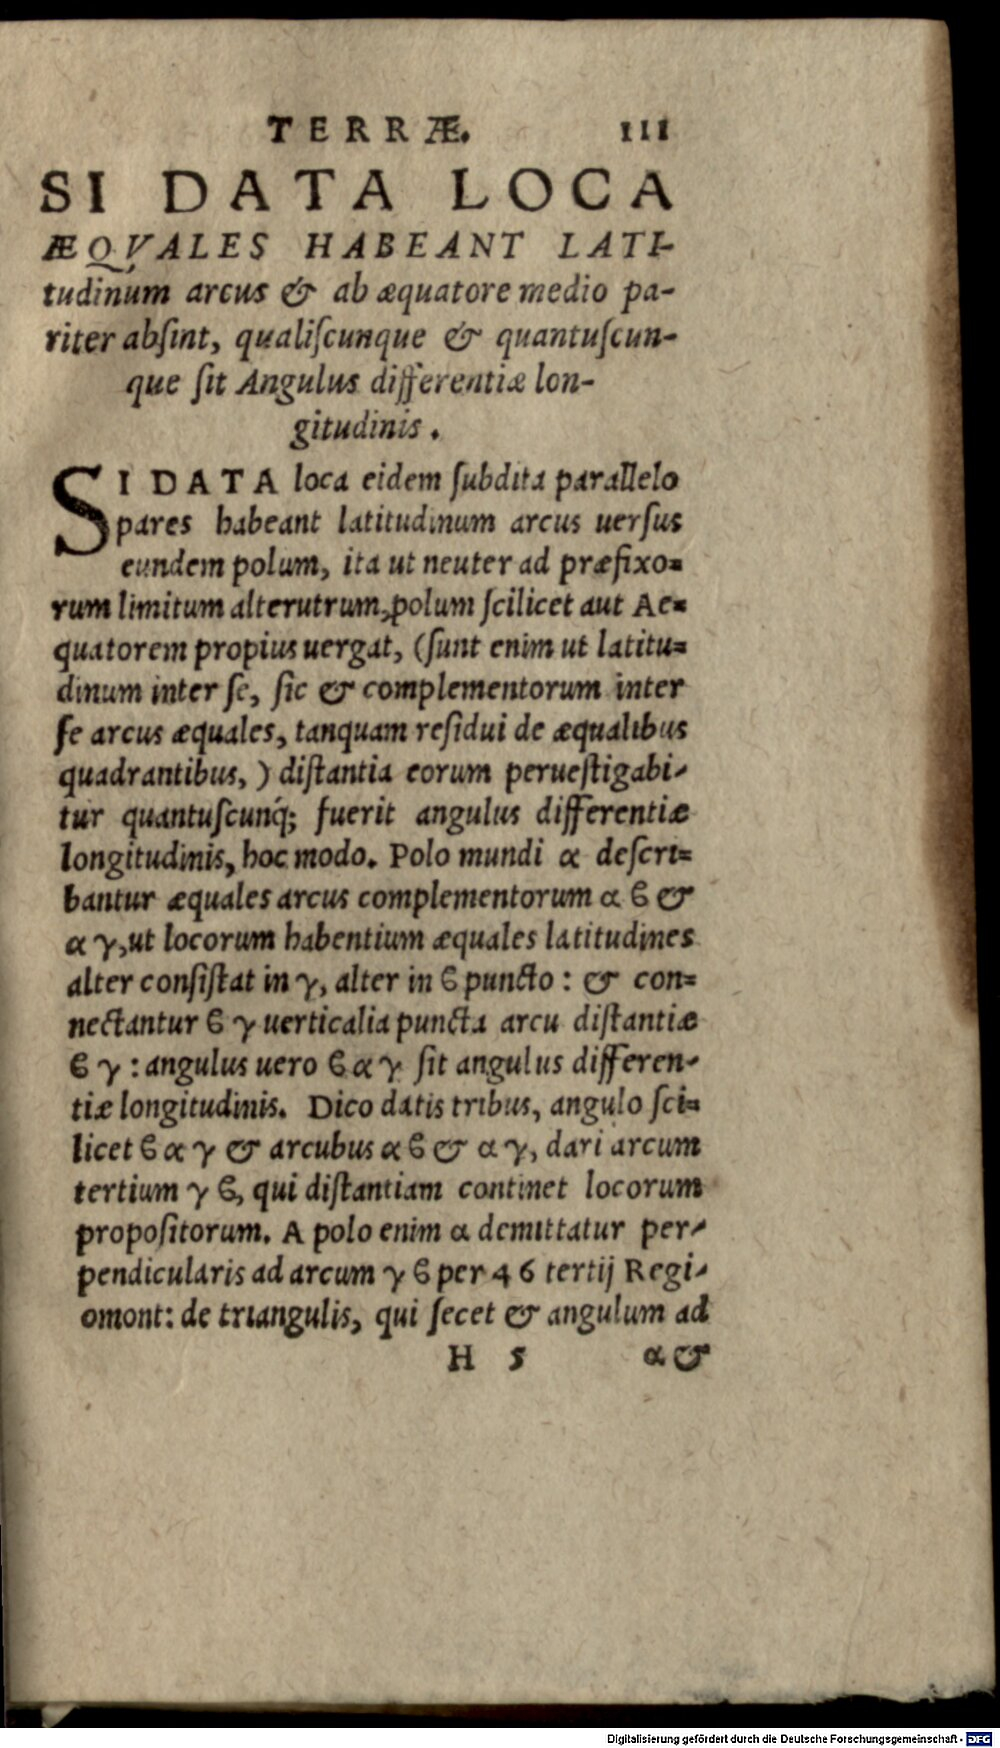 TERRÆ. 111
SI DATA LOCA
ÆQVALES HABEANT LATI-
tudinum arcus & ab æquatore medio pa-
riter abſint, qualiſcunque & quantuſcun-
que ſit Angulus differentiæ lon-
gitudinis.
SI DATA loca eidem ſubdita parallelo
pares habeant latitudinum arcus uerſus
eundem polum, ita ut neuter ad præfixo-
rum limitum alterutrum, polum ſcilicet aut Ae-
quatorem propius uergat, (ſunt enim ut latitu-
dinum inter ſe, ſic & complementorum inter
ſe arcus æquales, tanquam reſidui de æqualibus
quadrantibus, ) diſtantia eorum perueſtigabi-
tur quantuſcunq́; fuerit angulus differentiæ
longitudinis, hoc modo. Polo mundi α deſcri-
bantur æquales arcus complementorum α ϐ &
α γ, ut locorum habentium æquales latitudines
alter conſiſtat in γ, alter in ϐ puncto: & con-
nectantur ϐ γ uerticalia puncta arcu diſtantiæ
ϐ γ: angulus uero ϐ α γ ſit angulus differen-
tiæ longitudinis. Dico datis tribus, angulo ſci-
licet ϐ α γ & arcubus α ϐ & α γ, dari arcum
tertium γ ϐ, qui diſtantiam continet locorum
propoſitorum. A polo enim α demittatur per-
pendicularis ad arcum γ ϐ per 46 tertij Regi-
omont: de triangulis, qui ſecet & angulum ad
H 5 α &
Digitalisierung gefördert durch die Deutsche Forschungsgemeinschaft - DFG